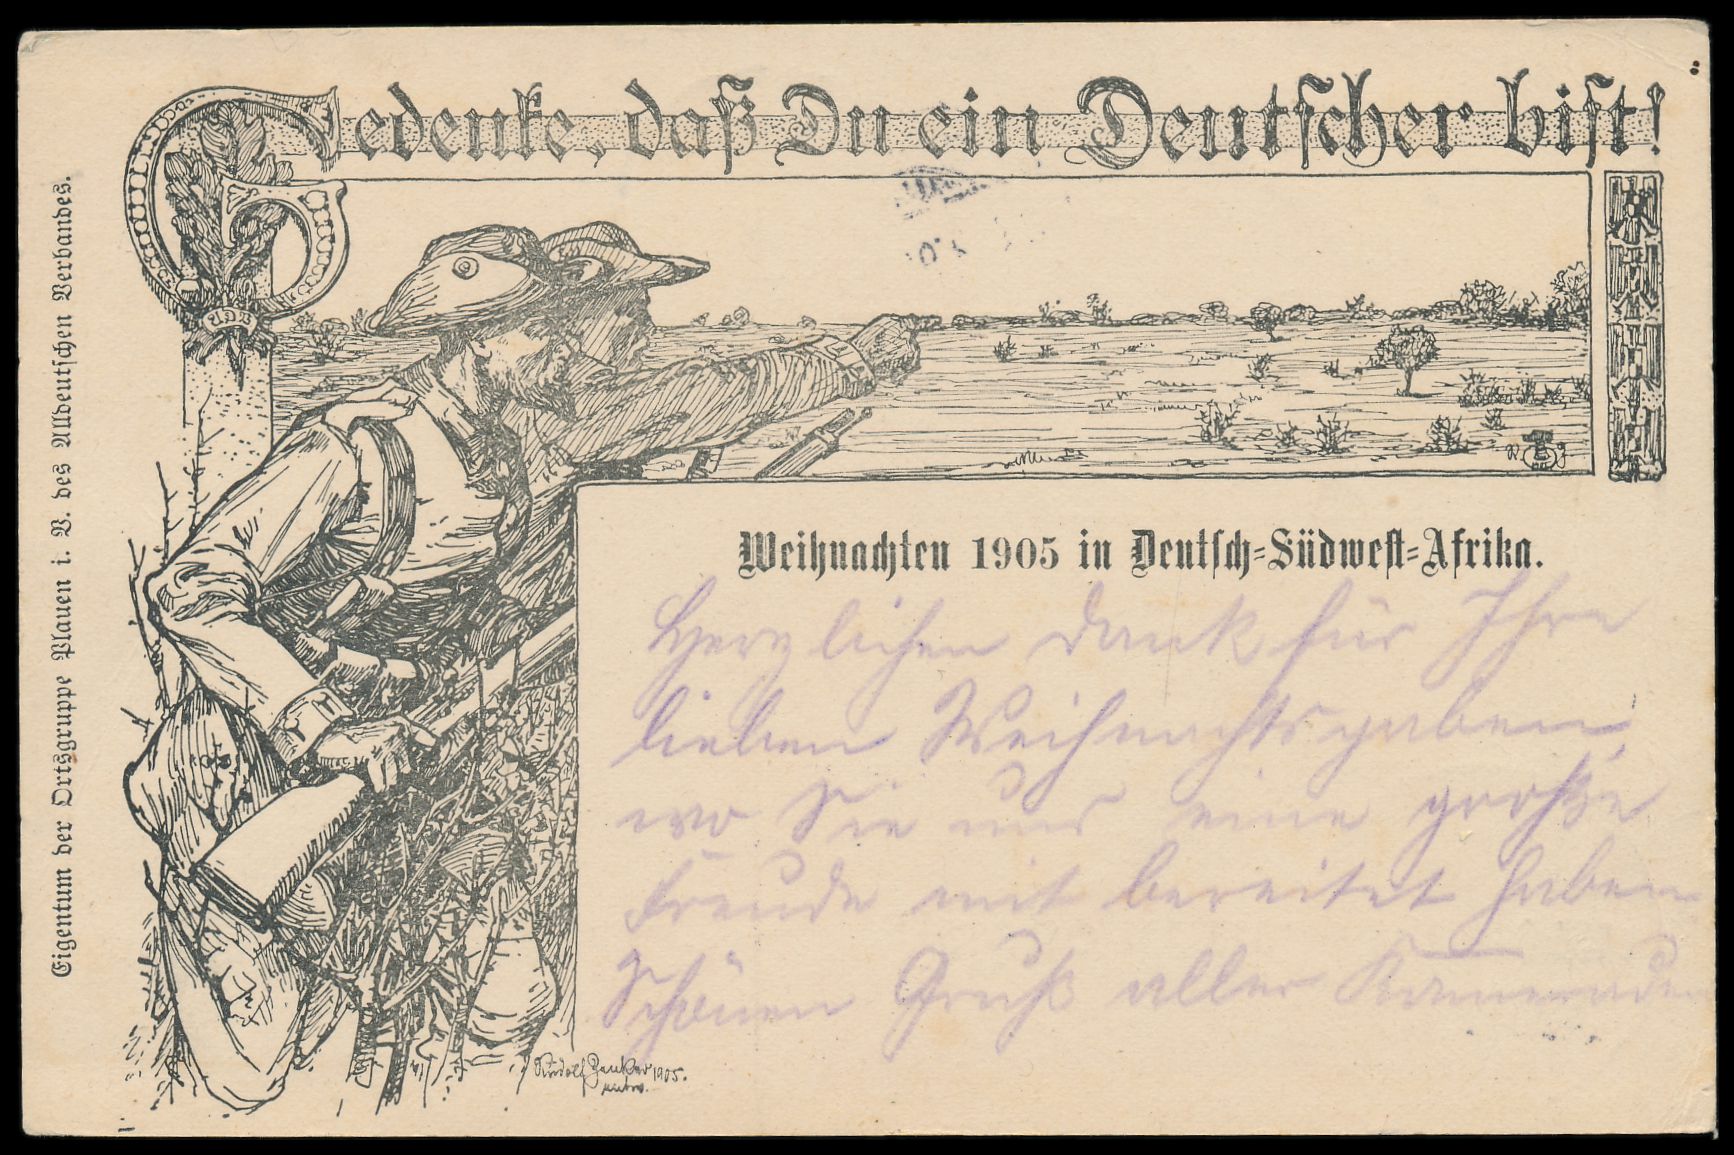 Gedenke, daß Du ein Deutscher bist!
ADV
Eigentum der Ortsgruppe Plauen i. V. des Alldeutschen Verbandes.
Weihnachten 1905 in Deutsch-Südwest-Afrika.
Herzlichen Dank für Ihre
lieben Weihnachtsgaben,
wo Sie uns eine große
Freude mit bereitet haben
Schönen Gruß aller Kameraden
Rudolf Zenker 1905.